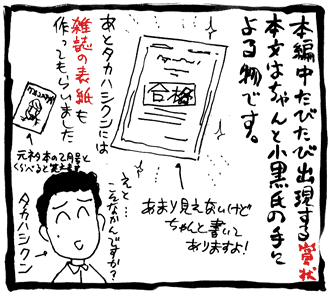 本編中たびたび出現する賞状
本文はちゃんと小黒氏の手に
よる物です。
合格
あまり見えないけど
ちゃんと書いて
ありますよ!
あとタカハシクンには
雑誌の表紙も
作ってもらいました
元ネタ本の2月号と
くらべると笑えます
えと…
こんなかんじですか?
タカハシクン